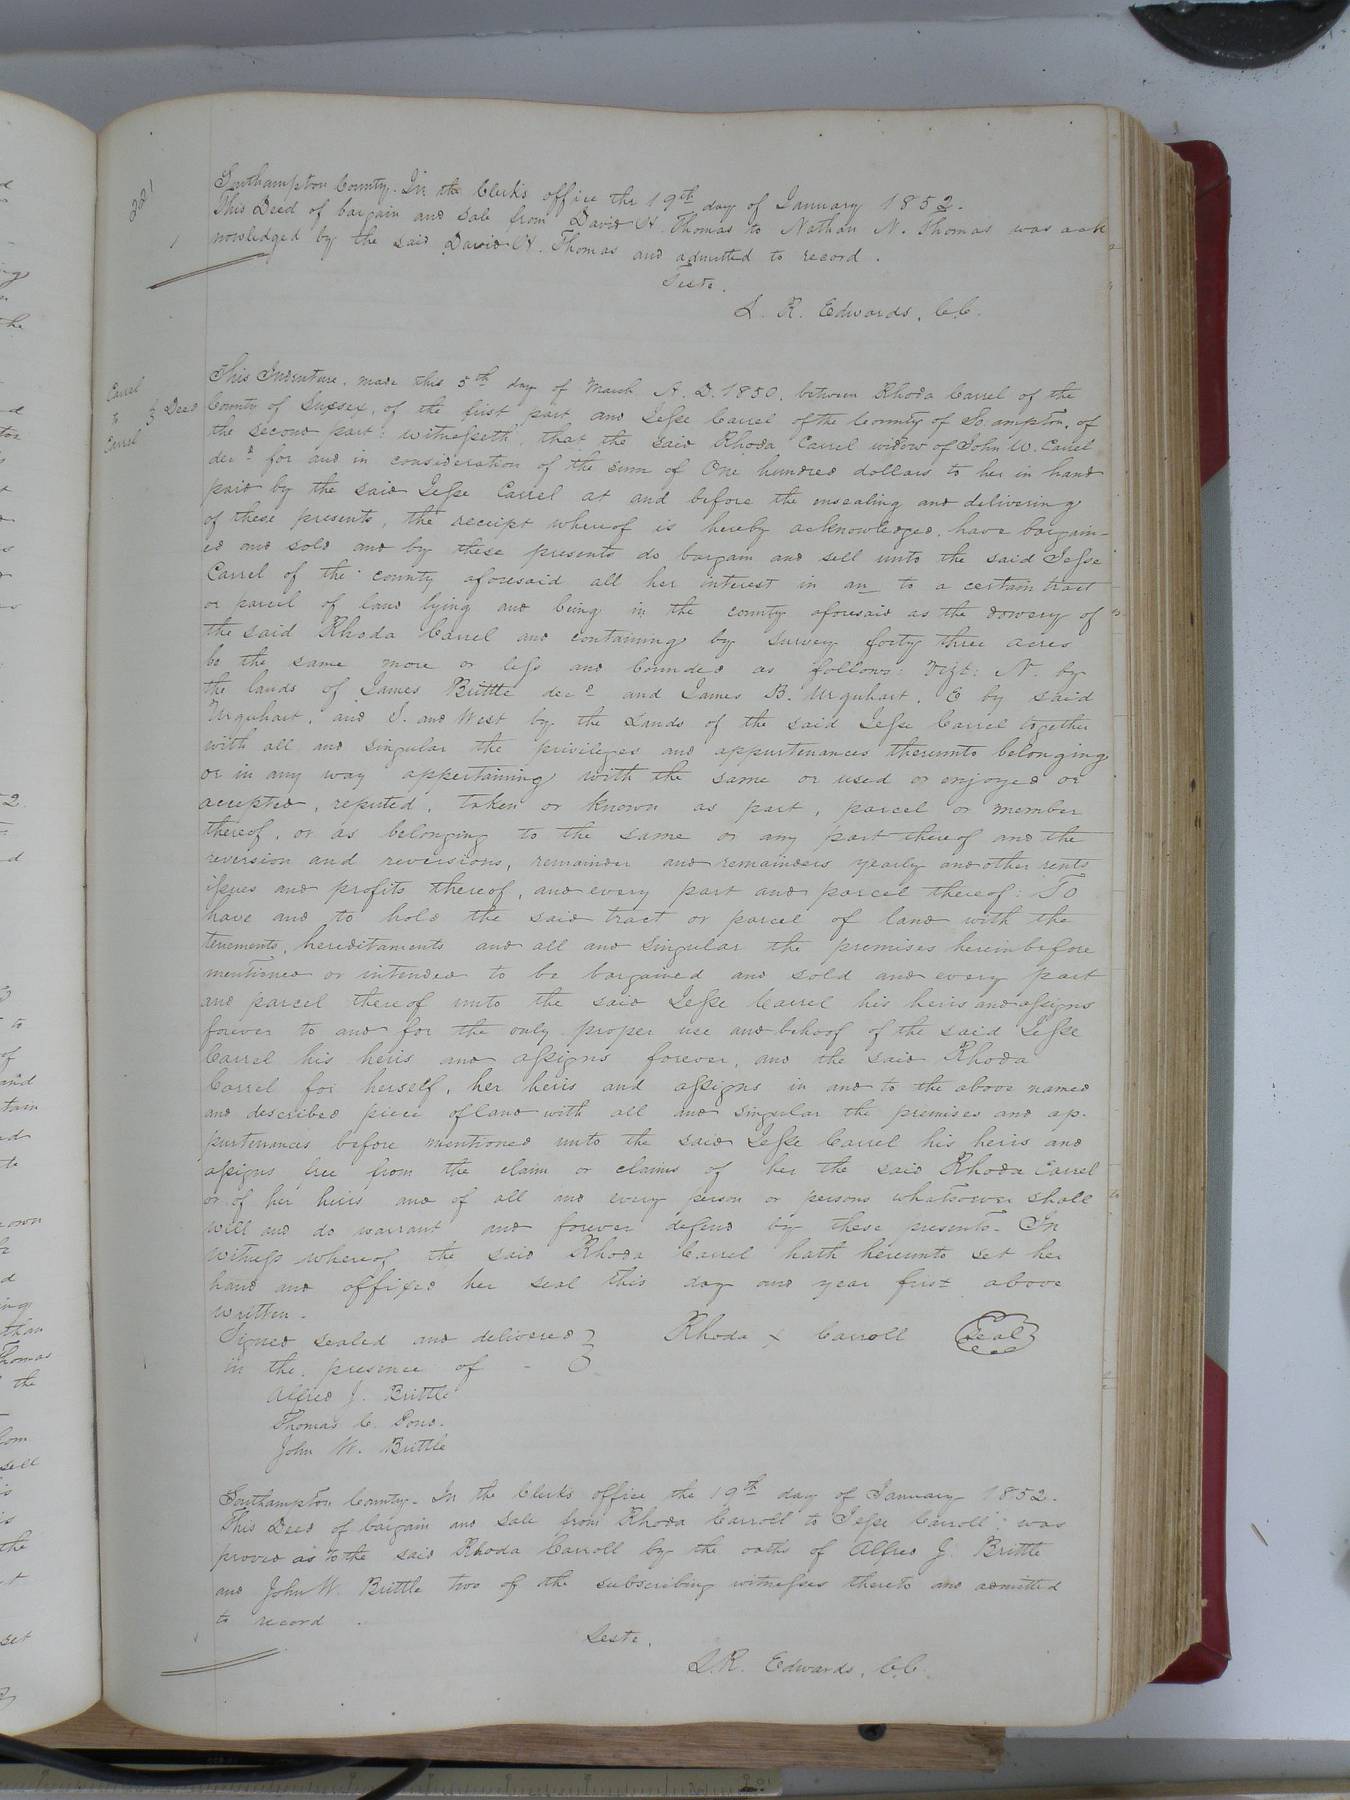 221
Southampton County. In the Clerk's office the 19th day of January 1852.
This Deed of bargain and sale from David H. Thomas to Nathan N. Thomas was ack
nowledged by the said David H. Thomas and admitted to record.
Teste.
L. R. Edwards, C.C.
Carrel
to
Carrel
} Deed
This Indenture, made this 5th day of March A. D. 1850, between Rhoda Carrel of the
County of Sussex, of the first part and Jesse Carrel of the County of So.ampton, of
the second part: witnesseth, that the said Rhoda Carrel widow of John W. Carrel
decd for and in consideration of the sum of One hundred dollars to her in hand
paid by the said Jesse Carrel at and before the ensealing and delivering
of these presents, the receipt whereof is hereby acknowledged, have bargain-
ed and sold and by these presents do bargain and sell unto the said Jesse
Carrel of the county aforesaid all her interest in an to a certain tract
or parcel of land lying and being in the county aforesaid as the dowery of
the said Rhoda Carrel and containing by survey forty three acres
be the same more or less and bounded as follows: Vizt: N. by
the lands of James Brittle decd and James B. Urquhart, E by said
Urquhart, and S. and West by the lands of the said Jesse Carrel together
with all and singular the privileges and appurtenances thereunto belonging
or in any way appertaining with the same or used or enjoyed or
accepted, reputed, taken or known as part, parcel or member
thereof, or as belonging to the same or any part thereof and the
reversion and reversions, remainder and remainders yearly and other rents
issues and profits thereof, and every part and parcel thereof: To
have and to hold the said tract or parcel of land with the
tenements, hereditaments and all and singular the premises hereinbefore
mentioned or intended to be bargained and sold and every part
and parcel thereof unto the said Jesse Carrel his heirs and assigns
forever to and for the only proper use and behoof of the said Jesse
Carrel his heirs and assigns forever, and the said Rhoda
Carrel for herself, her heirs and assigns in and to the above named
and described piece of land with all and singular the premises and ap-
purtenances before mentioned unto the said Jesse Carrel his heirs and
assigns free from the claim or claims of her the said Rhoda Carrel
or of her heirs and of all and every person or persons whatsoever shall
will and do warrant and forever defend by these presents. In
witness whereof the said Rhoda Carrel hath hereunto set her
hand and affixed her seal this day and year first above
written.
Signed sealed and delivered } Rhoda x Carroll Seal
in the presence of
Alfred J. Brittle
Thomas C. Pond.
John W. Brittle
Southampton County. In the Clerk's office the 19th day of January 1852.
This Deed of bargain and sale from Rhoda Carroll to Jesse Carroll, was
proved as to the said Rhoda Carroll by the oaths of Alfred J. Brittle
and John W. Brittle two of the subscribing witnesses thereto and admitted
to record.
Teste.
L.R. Edwards, C.C.